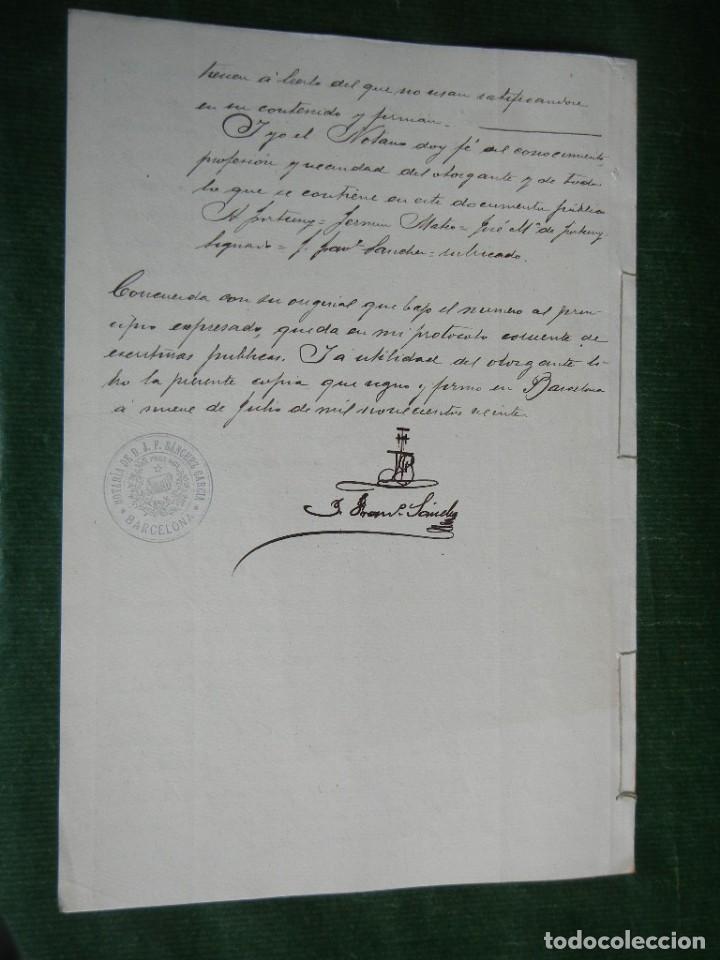 tienen á leerlo del que no usan ratificandose
en su contenido y firman.
Y yo el Notario doy fé del conocimiento,
profesión y vecindad del otorgante y de todo
lo que se contiene en este documento público
A Fortuny = Fermin Mateo = José Mª de Fortuny
Signado = J. Franco Sanchez = rubricado.
Concuerda con su original que bajo el numero al prin-
cipio expresado, queda en mi protocolo corriente de
escrituras publicas. Y á utilidad del otorgante li-
bro la presente copia que signo y firmo en Barcelona
á nueve de Julio de mil novecientos veinte.
NOTARÍA DE D. J. F. SÁNCHEZ GARCÍA
BARCELONA
J. Franco Sánchez
todocoleccion.net